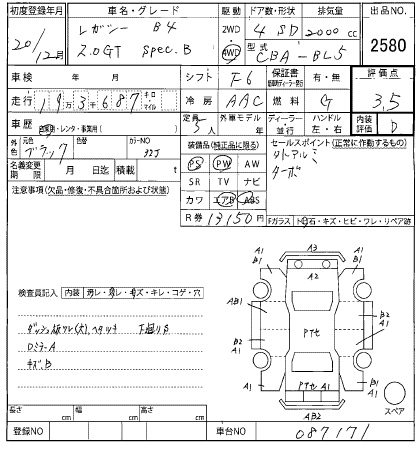 初度登録年月 車名・グレード 駆動 ドア数・形状 排気量 出品NO.
20年12月 レガシー B4 2WD 4 SD 2000 cc 2580
2.0GT Spec.B 4WD 型式 CBA-BL5
車検 年 月 シフト F6 保証書 有・無 評価点
走行 193687 キロ マイル 冷房 AAC 燃料 G 3.5
車歴 自家用・レンタ・事業用( ) 定員 5人 外車モデル 年 ディーラー・並行 ハンドル 左・右 内装評価 D
外色 元色 ブラック 色替 カラーNO 32J
装備品(純正品に限る) セールスポイント(正常に作動するもの)
名義変更期限 月 日迄 積載 t PS PW AW
注意事項(欠品・修復・不具合箇所および状態) SR TV ナビ ターボ
カワ エアB ABS
R券 13150円 Fガラス トビ石・キズ・ヒビ・ワレ・リペア跡
検査員記入 内装 汚レ・スレ・キズ・キレ・コゲ・穴
下廻りS
DミラーA
キズB
A1 A3 A1
A2
AB1 B2 A1
PTセ
B2 A1
A1 PTセ A1 B1 A1
AB2 スペア
長さ cm 幅 cm 高さ cm
登録NO 車台NO 087171